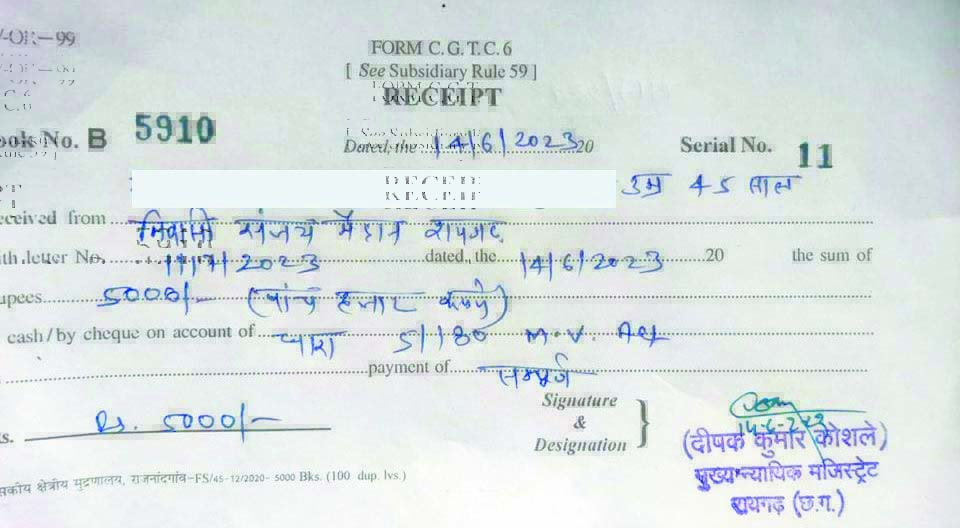 FORM C. G. T. C. 6
[ See Subsidiary Rule 59 ]
RECEIPT
ook No. B 5910
Dated, the 14/6/2023 20
Serial No. 11
उम्र 45 साल
eceived from
निवासी संजय मैदान रायगढ़
ith letter No. 1171/2023 dated, the 14/6/2023 20 the sum of
upees 5000/- (पांच हजार रूपये)
cash/by cheque on account of धारा 5/180 M.V. Act
payment of सम्पूर्ण
Signature
&
Designation
s. Rs. 5000/-
14-6-23
(दीपक कुमार कोशले)
मुख्य न्यायिक मजिस्ट्रेट
रायगढ़ (छ.ग.)
सकीय क्षेत्रीय मुद्रणालय, राजनांदगांव-FS/45-12/2020- 5000 Bks. (100 dup. lvs.)